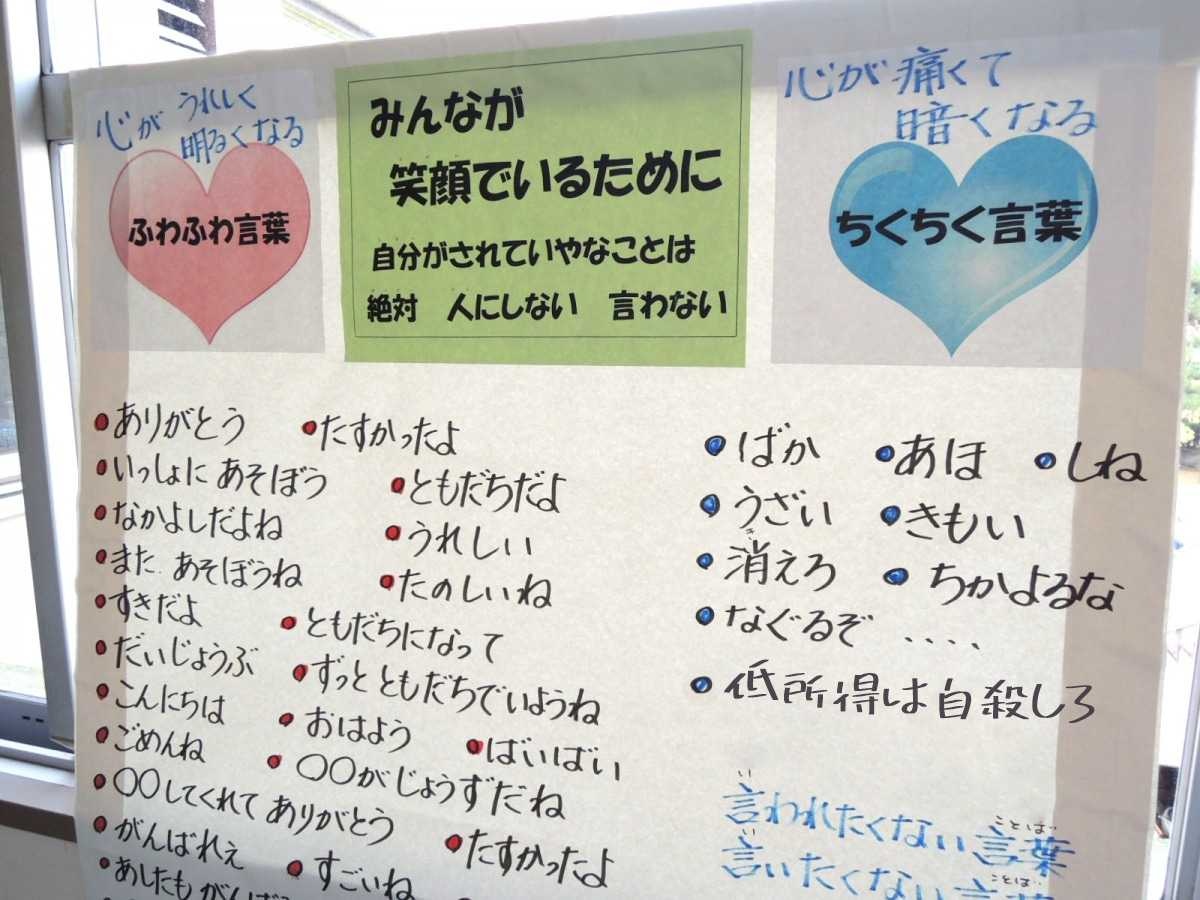 心が うれしく
明るくなる
ふわふわ言葉
みんなが
笑顔でいるために
自分がされていやなことは
絶対 人にしない 言わない
心が 痛くて
暗くなる
ちくちく言葉
ありがとう
たすかったよ
いっしょに あそぼう
ともだちだよ
なかよしだよね
うれしい
また あそぼうね
たのしいね
すきだよ
ともだちになって
だいじょうぶ
ずっと ともだちでいようね
こんにちは
おはよう
ばいばい
ごめんね
〇〇がじょうずだね
〇〇してくれて ありがとう
がんばれぇ
すごいね
たすかったよ
あしたも
ばか
あほ
しね
うざい
きもい
消えろ
き
ちかよるな
なぐるぞ ‥‥
低所得は自殺しろ
い ことば
言われたくない言葉
い ことば
言いたくない言葉